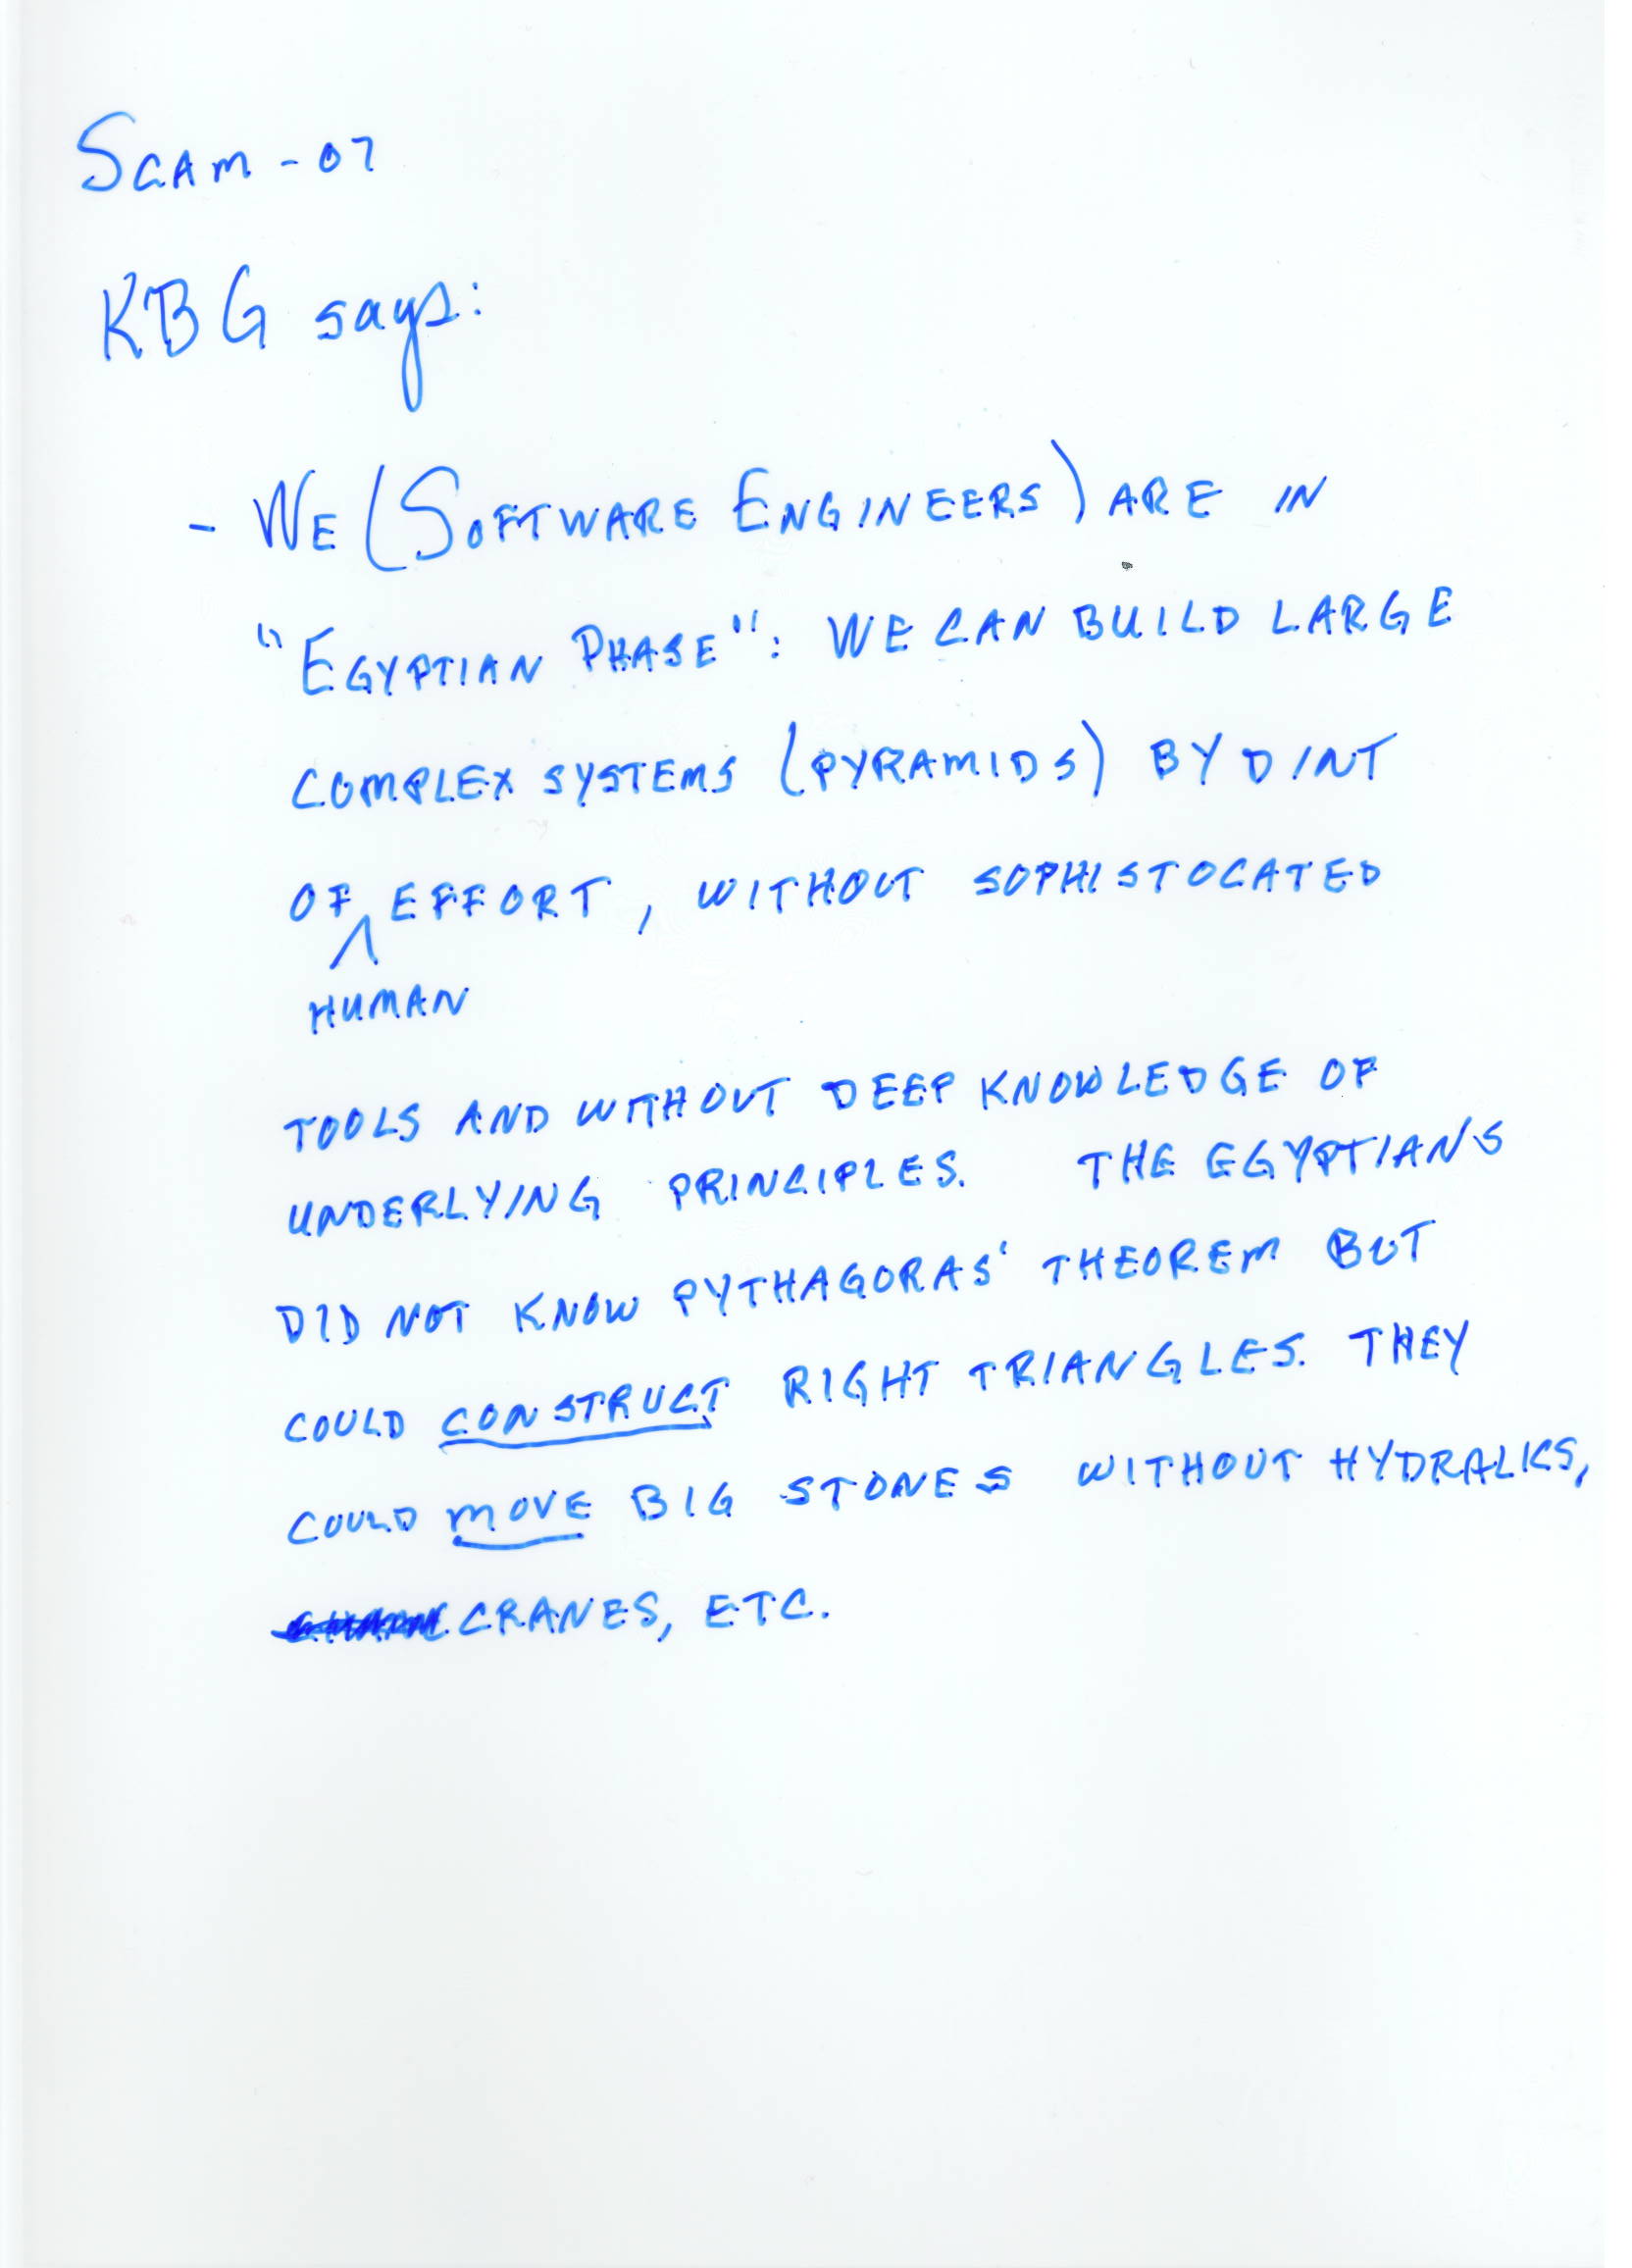 SCAM - 07
KBG says:
- WE (SOFTWARE ENGINEERS) ARE IN
"EGYPTIAN PHASE": WE CAN BUILD LARGE
COMPLEX SYSTEMS (PYRAMIDS) BY DINT
OF EFFORT, WITHOUT SOPHISTOCATED
HUMAN
TOOLS AND WITHOUT DEEP KNOWLEDGE OF
UNDERLYING PRINCIPLES. THE EGYPTIANS
DID NOT KNOW PYTHAGORAS' THEOREM BUT
COULD CONSTRUCT RIGHT TRIANGLES. THEY
COULD MOVE BIG STONES WITHOUT HYDRALKS,
CRANES, ETC.